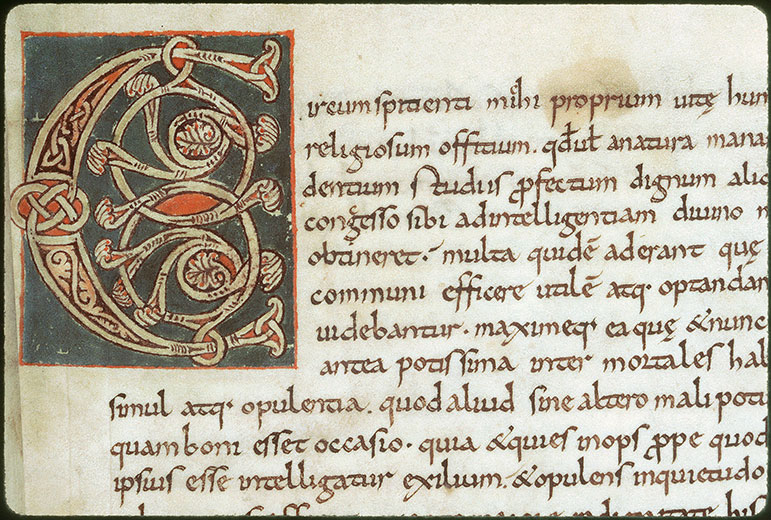 Circumspicienti mihi proprium uitę hum
religiosum offitium. qd ul a natura mana
dentium studiis profectum dignum aliq
congesso sibi ad intelligentiam diuino m
obtineret. multa quidē aderant quę
communi efficere utilē atq. optandam
uidebantur. maximeq. ea quę & nunc
antea potissima inter mortales hab
simul atq. opulentia. quod aliud sine altero mali potiu
quam boni esset occasio. quia & quies inops prope quod
ipsius esse intelligatur exilium. & opulens inquietudo